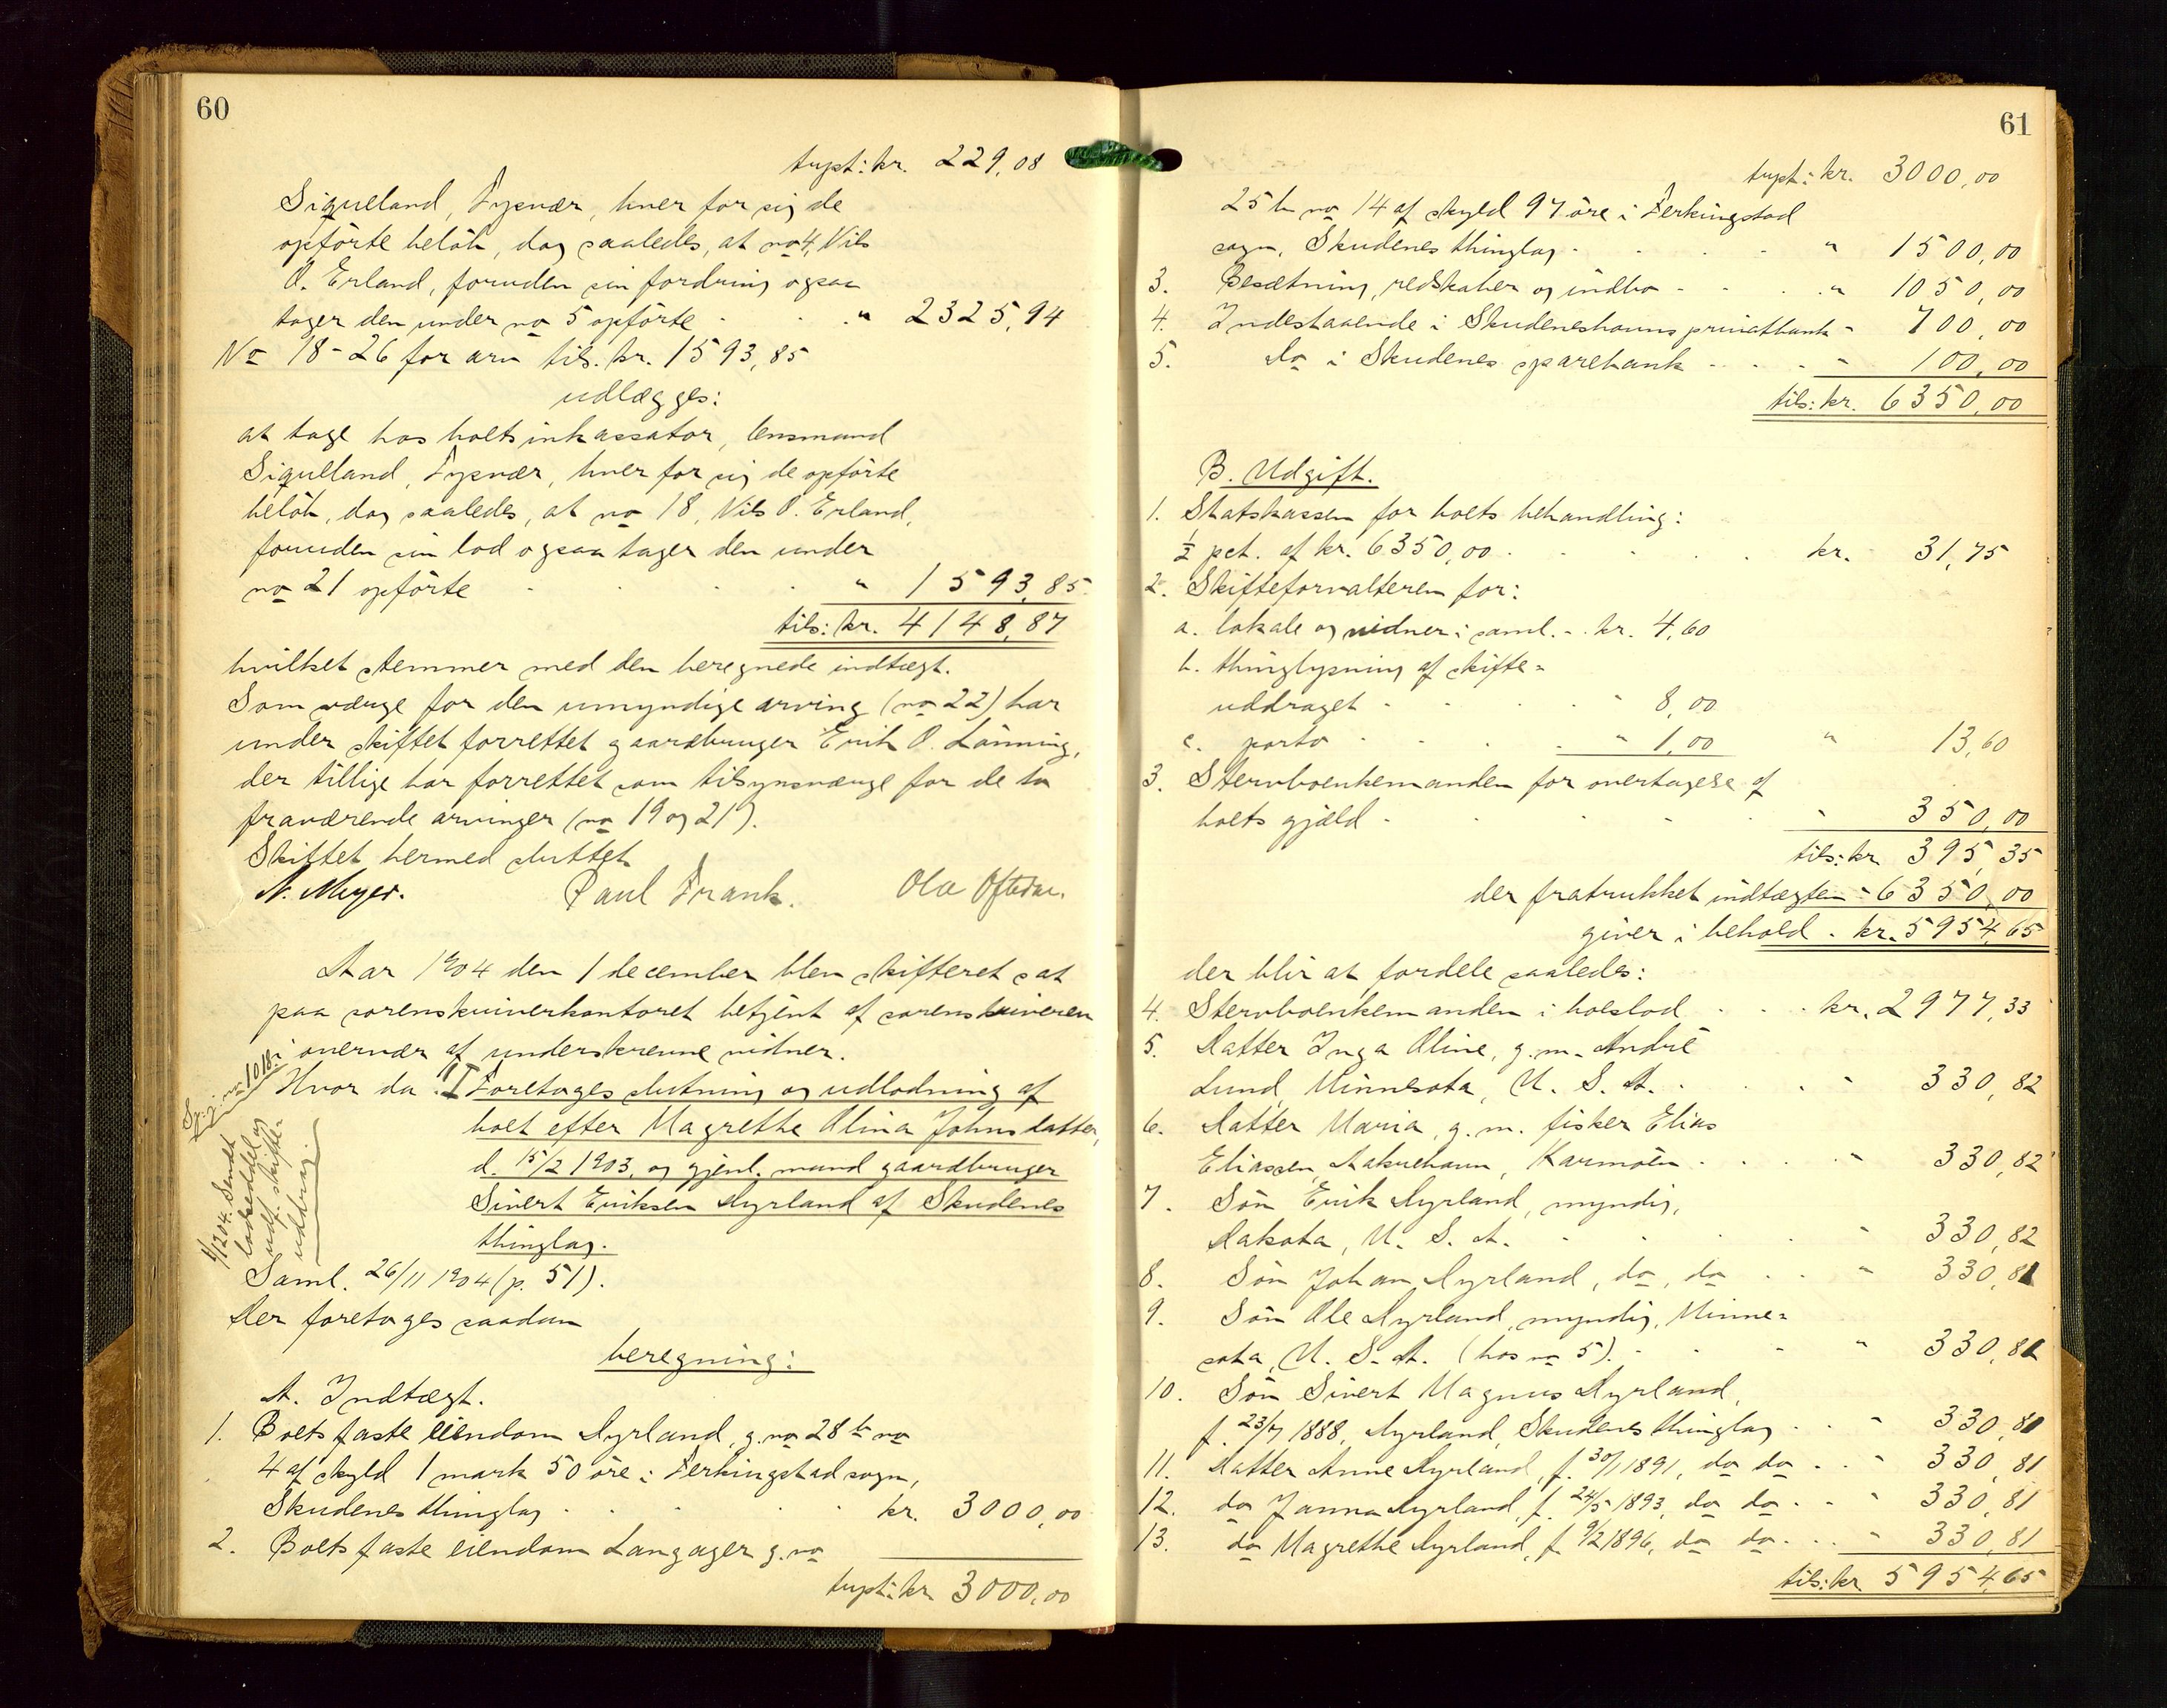 60
trspt: kr. 229,08
Siqueland, Tysvær, hver for sig de
opførte beløb, dog saaledes, at no 4, Nils
O. Erland, foruden sin fordring ogsaa
tager den under no 5 opførte . . . " 2325,94
No 18-26 for arv tils. kr. 1593,85
udlægges:
at tage hos boets inkassator, lensmand
Siqueland, Tysvær, hver for sig de opførte
beløb, dog saaledes, at no 18, Nils O. Erland,
foruden sin lod ogsaa tager den under
no 21 opførte . . . " 1593,85
tils: kr. 4148,87
hvilket stemmer med den beregnede indtægt.
Som værge for den umyndige arving (no 22) har
under skiftet forrettet gaardbruger Erik O. Lönning,
der tillige har forrettet som tilsynsværge for de to
fraværende arvinger (no 19 og 21).
Skiftet hermed sluttet
N. Meyer. Paul Frank. Ola Oftedal.
Aar 1904 den 1 december blev skifteret sat
paa sorenskriverkontoret betjent af sorenskriveren
i overvær af underskrevne vidner.
Hvor da: I Foretoges slutning og udlodning af
boet efter Magrethe Olina Johnsdatter,
d. 15/2 1903, og gjenl. mand gaardbruger
Sivert Eriksen Dyrland af Skudenes
thinglag.
no 1018.
1/12 04. Sendt
lodseddel og
udf. skifte-
uddrag.
Saml. 26/11 1904 (p. 51).
Der foretoges saadan
beregning:
A. Indtægt.
1. Boets faste eiendom Dyrland, g. no 28 b no
4 af skyld 1 mark 50 øre i Ferkingstad sogn,
Skudenes thinglag . . . kr. 3000,00
2. Boets faste eiendom Langager g. no
trspt: kr. 3000,00
61
trspt: kr. 3000,00
25 b no 14 af skyld 97 øre i Ferkingstad
sogn, Skudenes thinglag . . . " 1500,00
3. Besætning, redskaber og indbo . . . " 1050,00
4. Indestaaende i Skudeneshavns privatbank " 700,00
5. do i Skudenes sparebank . . . " 100,00
tils: kr. 6350,00
B. Udgift.
1. Statskassen for boets behandling:
½ pct. af kr. 6350,00 . . . kr. 31,75
2. Skifteforvalteren for:
a. lokale og vidner i saml. . kr. 4,60
b. thinglysning af skifte-
uddraget . . . " 8,00
c. porto . . . " 1,00 " 13,60
3. Stervboenkemanden for overtagelse af
boets gjæld . . . " 350,00
tils: kr 395,35
der fratrukket indtægten - 6350,00
giver i behold . kr. 5954,65
der blir at fordele saaledes:
4. Stervboenkemanden i boeslod . . . kr. 2977,33
5. Datter Inga Oline, g. m. André
Lund, Minnesota, U. S. A. . . . " 330,82
6. Datter Maria, g. m. fisker Elias
Eliassen, Aakrehavn, Karmøen . . . " 330,82
7. Søn Erik Dyrland, myndig,
Dakota, U. S. A. . . . " 330,82
8. Søn Johan Dyrland, do, do . . . " 330,81
9. Søn Ole Dyrland, myndig, Minne-
sota, U. S. A. (hos no 5) . . . " 330,81
10. Søn Sivert Magnus Dyrland,
f. 23/7 1888, Dyrland, Skudenes thinglag . . " 330,81
11. Datter Anne Dyrland, f. 30/1 1891, do do . . " 330,81
12. do Janna Dyrland, f. 24/5 1893, do do . . " 330,81
13. do Magrethe Dyrland, f. 9/2 1896, do do . . " 330,81
tils: kr 5954,65